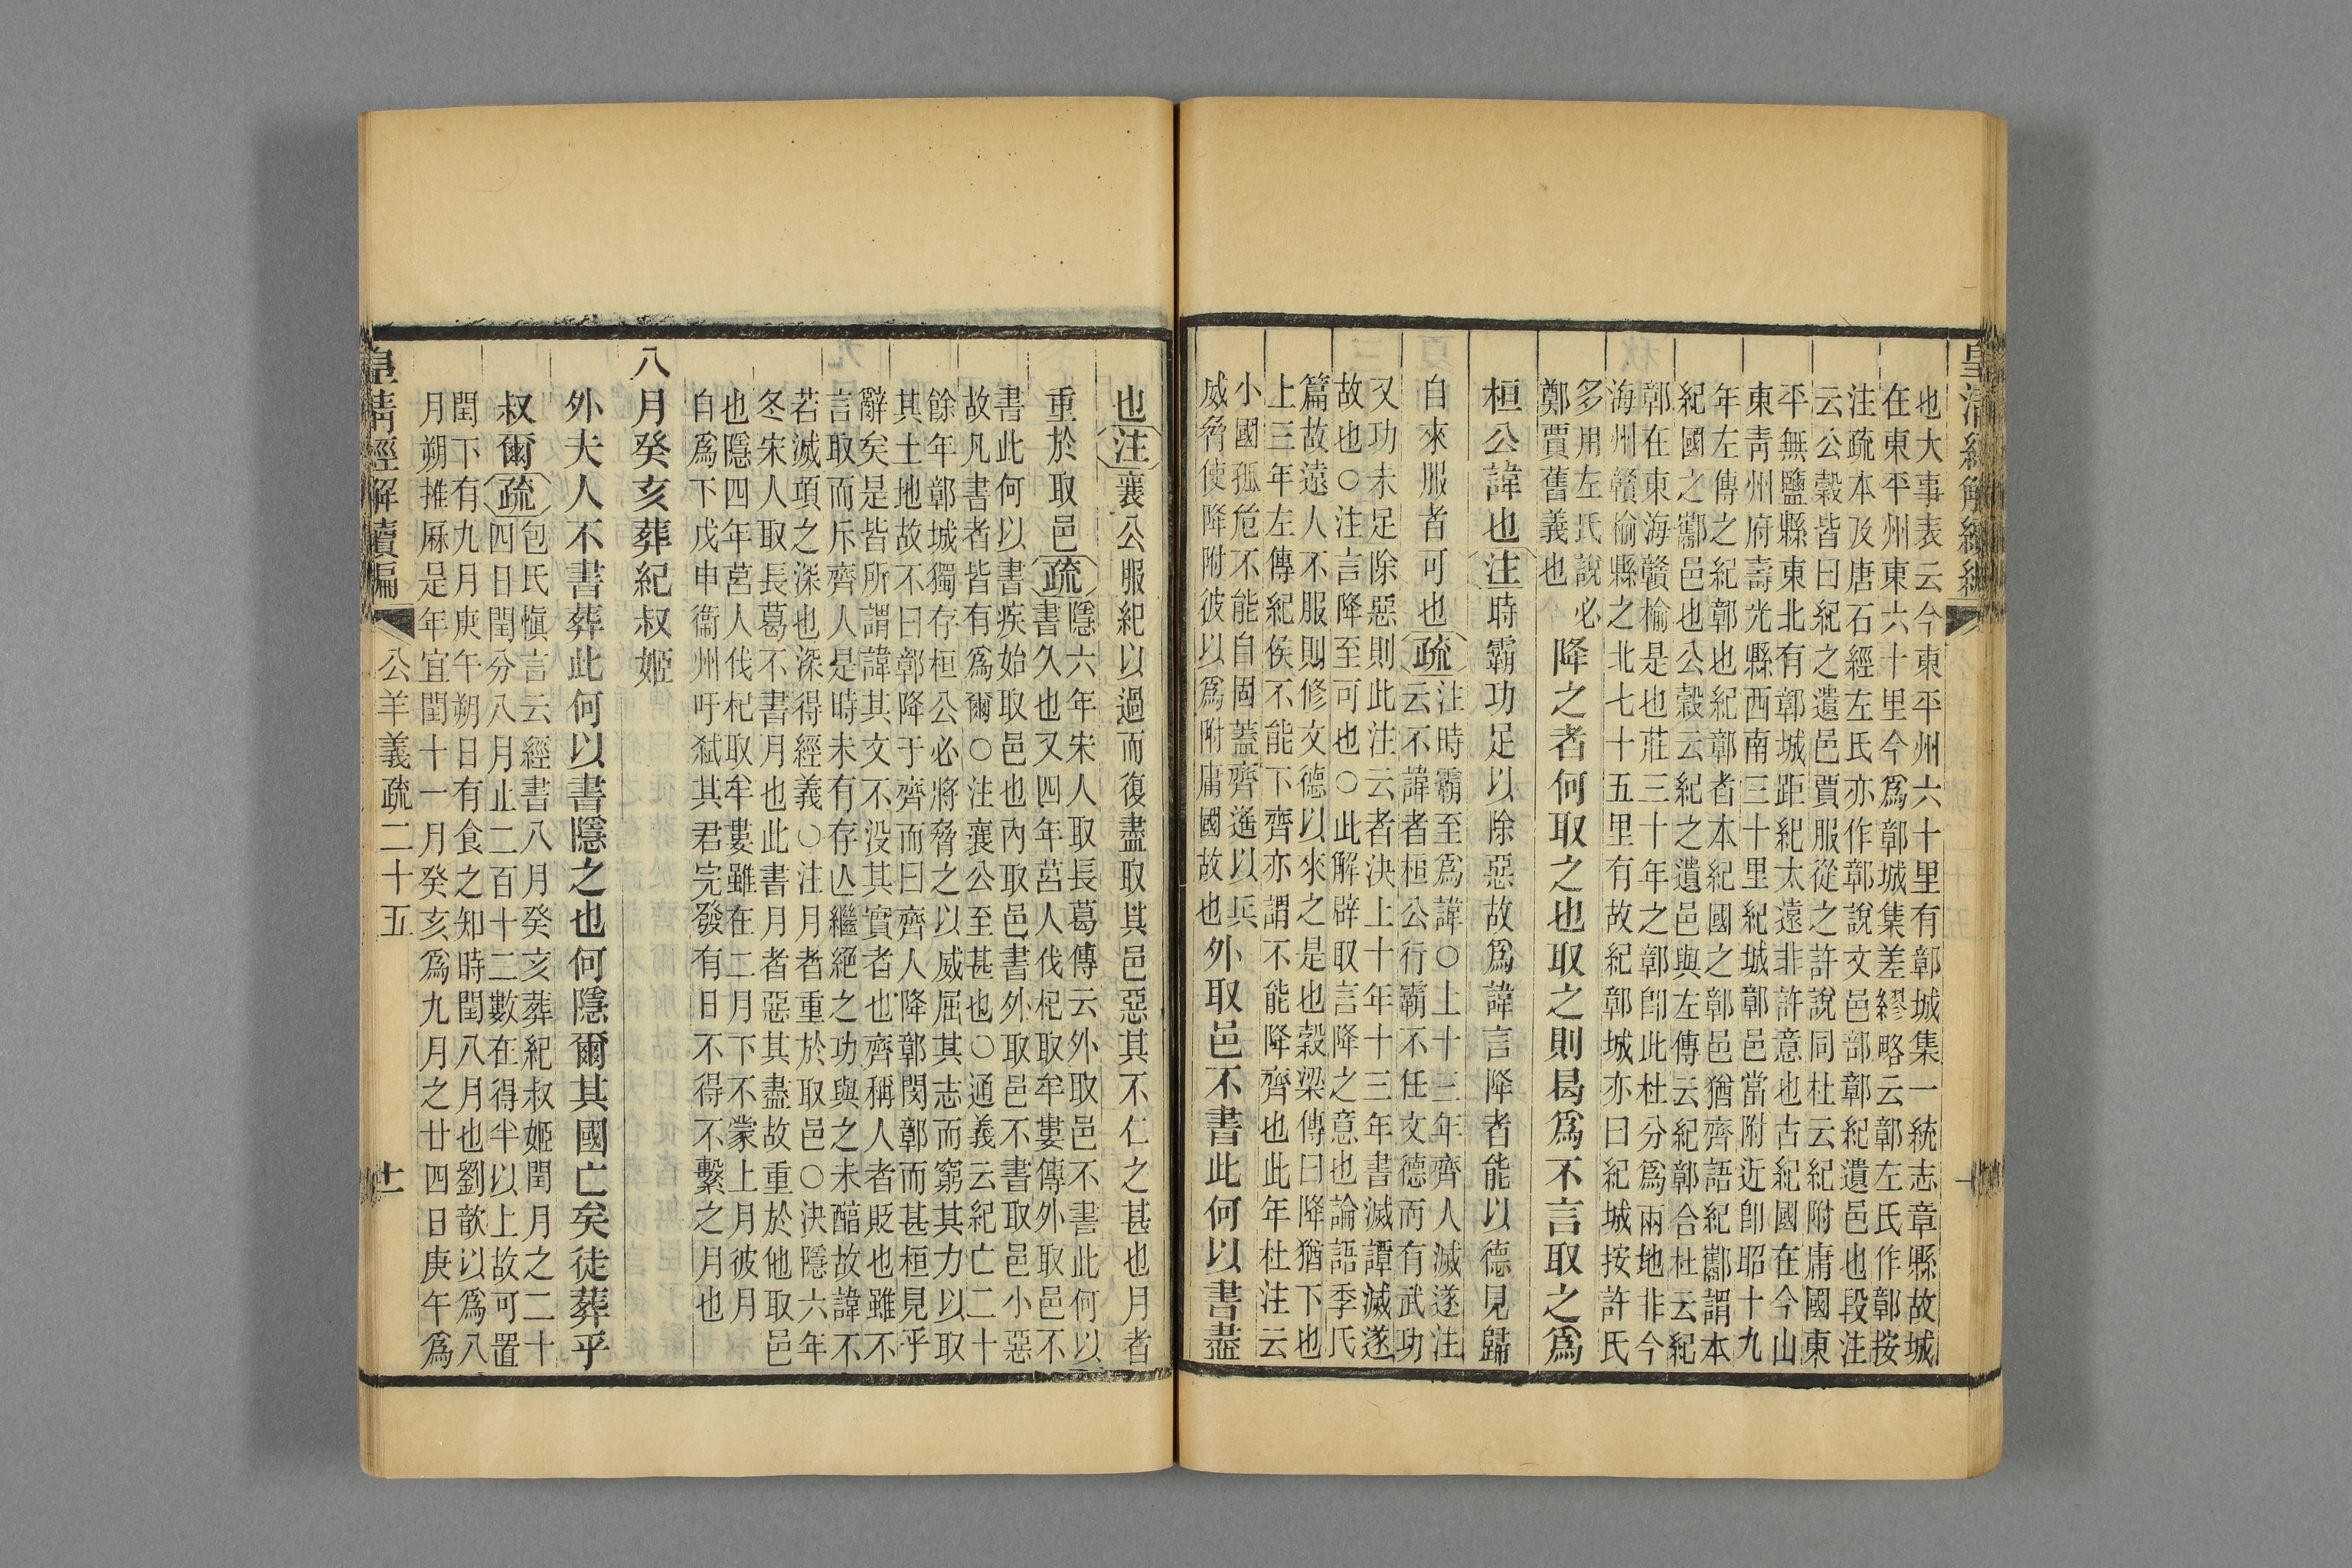 皇清經解續編
也大事表云今東平州六十里有鄣城集一統志章縣故城
在東平州東六十里今爲鄣城集差繆略云鄣左氏作鄣按
注疏本及唐石經左氏亦作鄣說文邑部鄣紀遺邑也段注
云公穀皆曰紀之遺邑賈服從之許說同杜云紀附庸國東
平無鹽縣東北有鄣城距紀太遠非許意也古紀國在今山
東靑州府壽光縣西南三十里紀城鄣邑當附近卽昭十九
年左傳之紀鄣也紀鄣者本紀國之鄣邑猶齊語紀酅謂本
紀國之酅邑也公穀云紀之遺邑與左傳云紀鄣合杜云紀
鄣在東海贛榆是也莊三十年之鄣卽此杜分爲兩地非今
海州贛榆縣之北七十五里有故紀鄣城亦曰紀城按許氏
多用左氏說必
鄭賈舊義也
降之者何取之也取之則曷爲不言取之爲
桓公諱也注時霸功足以除惡故爲諱言降者能以德見歸
自來服者可也疏
注時霸至爲諱○上十三年齊人滅遂注
云不諱者桓公行霸不任文德而有武功
又功未足除惡則此注云者決上十年十三年書滅譚滅遂
故也○注言降至可也○此解辟取言降之意也論語季氏
篇故遠人不服則修文德以來之是也穀梁傳曰降猶下也
上三年左傳紀侯不能下齊亦謂不能降齊也此年杜注云
小國孤危不能自固蓋齊遙以兵
威脅使降附彼以爲附庸國故也
外取邑不書此何以書盡
也注襄公服紀以過而復盡取其邑惡其不仁之甚也月者
重於取邑疏
隱六年宋人取長葛傳云外取邑不書此何以
書久也又四年莒人伐杞取牟婁傳外取邑不
書此何以書疾始取邑也內取邑書外取邑不書取邑小惡
故凡書者皆有爲爾○注襄公至甚也○通義云紀亡二十
餘年鄣城獨存桓公必將脅之以威屈其志而窮其力以取
其土地故不曰鄣降于齊而曰齊人降鄣閔鄣而甚桓見乎
辭矣是皆所謂諱其文不沒其實者也齊稱人者貶也雖不
言取而斥齊人是時未有存亾繼絕之功與之未醕故諱不
若滅項之深也深得經義○注月者重於取邑○決隱六年
冬宋人取長葛不書月也此書月者惡其盡故重於他取邑
也隱四年莒人伐杞取牟婁雖在二月下不蒙上月彼月
自爲下戊申衞州吁弑其君完發有日不得不繫之月也
八月癸亥葬紀叔姬
外夫人不書葬此何以書隱之也何隱爾其國亡矣徒葬乎
叔爾疏
包氏愼言云經書八月癸亥葬紀叔姬閏月之二十
四日閏分八月止二百十二數在得半以上故可置
閏下有九月庚午朔日有食之知時閏八月也劉歆以爲八
月朔推厤是年宜閏十一月癸亥爲九月之廿四日庚午爲
皇淸經解續編
公羊義疏二十五
十一